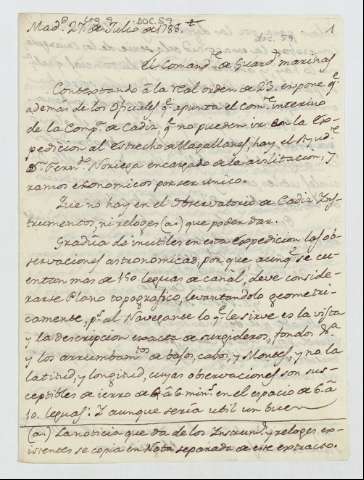 DOC. 59
Mad.d 27 de Julio de 1788.
1
El Comand.te de Guard.s marinas
Contextando á la real orden de 23. expone q.e
además de los Oficiales q.e apunta el com.te interino
de la Comp.a de Cadiz q.e no pueden ir con la Ex-
pedicion al estrecho de Magallanes, hay el Ayud.te
D.n Fern.do Noriega encargado de la avilitacion, y
ramos economicos por ser unico.
Que no hay en el Observatorio de Cadiz Ins-
trumentos, ni reloges (a.) que poder dar.
Gradúa de inutiles en esta Expedicion las ob-
servaciones astronomicas, por que aunq.e se cu-
enten mas de 150 leguas de canal, deve conside-
rarse Plano topografico, levantandolo geometri-
camente, p.s al Navegante lo q.e le sirve es la vista
y la descripcion exacta de surgideros, fondos &a
y los arrumbam.tos de bajos, cabos, y Montes, y no la
latitud, y longitud, cuyas observaciones son sus-
ceptibles de ierro de 4 á 6 min.s en el espacio de 6 á
10. leguas. Y aunque seria util un buen
(a.) La noticia que da de los Instrum.s y reloges ex-
sistentes se copia en Nota separada de este extracto.